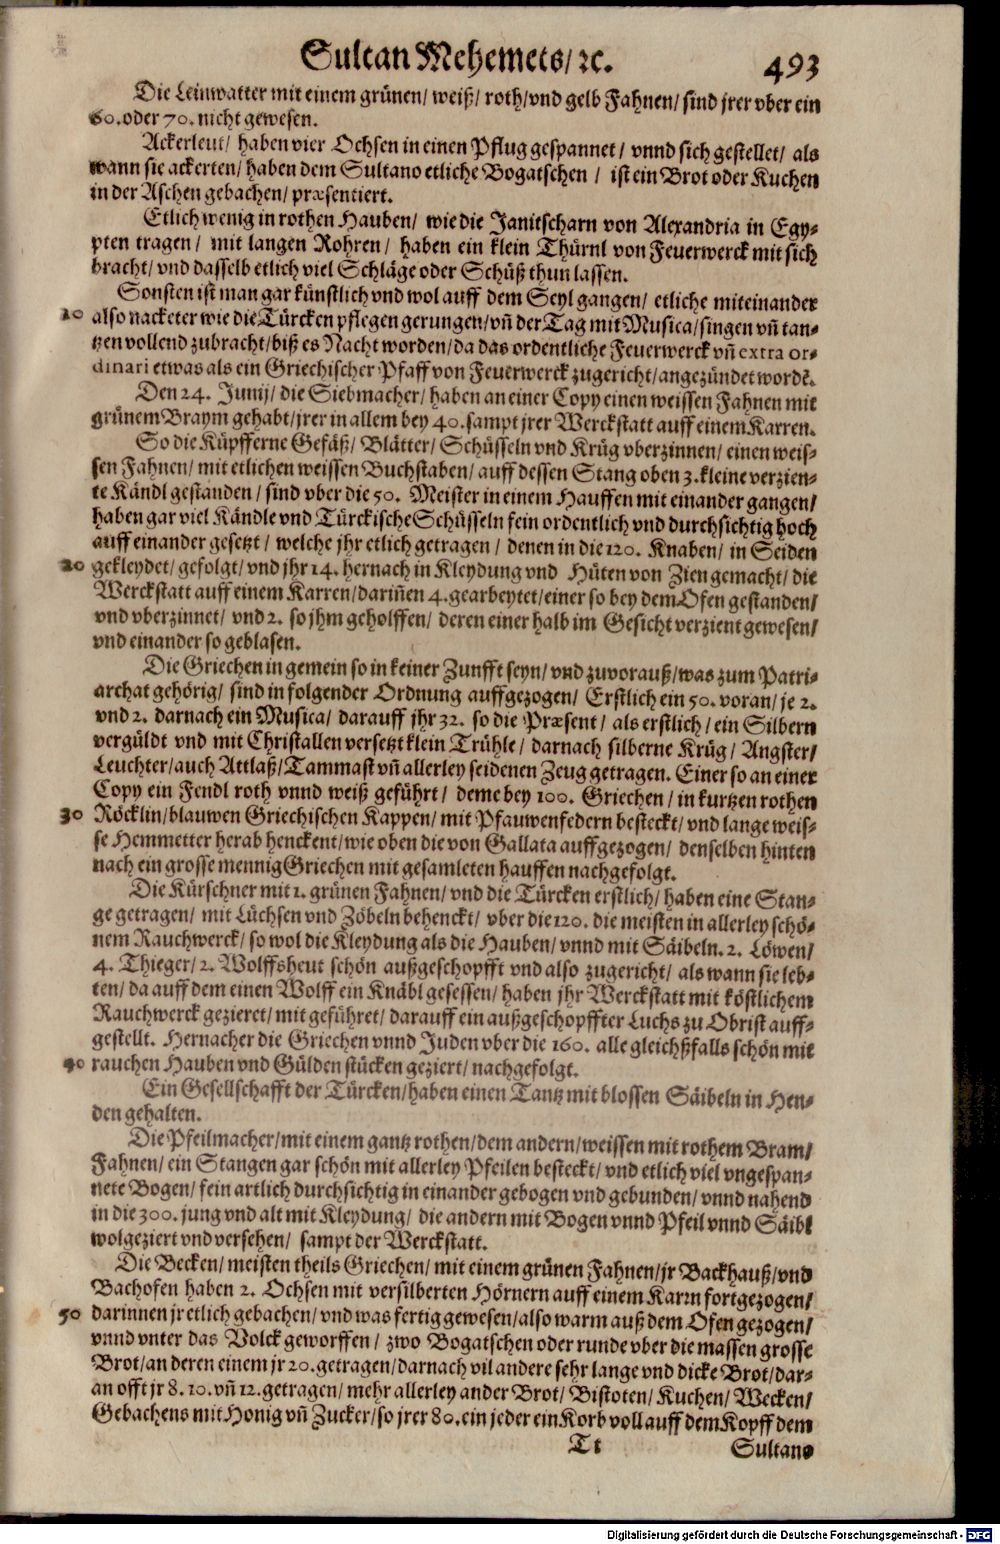 Sultan Mehemets/ ꝛc. 493
Die Leinwatter mit einem grünen/ weiß/ roth/ vnd gelb Fahnen/ sind jrer vber ein
60. oder 70. nicht gewesen.
Ackerleut/ haben vier Ochsen in einen Pflug gespannet/ vnnd sich gestellet/ als
wann sie ackerten/ haben dem Sultano etliche Bogatschen/ ist ein Brot oder Kuchen
in der Aschen gebachen/ præsentiert.
Etlich wenig in rothen Hauben/ wie die Janitscharn von Alexandria in Egy-
pten tragen/ mit langen Rohren/ haben ein klein Thürnl von Feuerwerck mit sich
bracht/ vnd dasselb etlich viel Schläge oder Schüß thun lassen.
Sonsten ist man gar künstlich vnd wol auff dem Seyl gangen/ etliche miteinander
10 also nacketer wie die Türcken pflegen gerungen/ vñ der Tag mit Musica/ singen vñ tan-
tzen vollend zubracht/ biß es Nacht worden/ da das ordentliche Feuerwerck vñ extra or-
dinari etwas als ein Griechischer Pfaff von Feuerwerck zugericht/ angezündet wordẽ.
Den 24. Junij/ die Siebmacher/ haben an einer Copy einen weissen Fahnen mit
grünem Braym gehabt/ jrer in allem bey 40. sampt jrer Werckstatt auff einem Karren.
So die Küpfferne Gefäß/ Blätter/ Schüsseln vnd Krüg vberzinnen/ einen weis-
sen Fahnen/ mit etlichen weissen Buchstaben/ auff dessen Stang oben 3. kleine verzien-
te Kändl gestanden/ sind vber die 50. Meister in einem Hauffen mit einander gangen/
haben gar viel Kändle vnd Türckische Schüsseln fein ordentlich vnd durchsichtig hoch
auff einander gesetzt/ welche jhr etlich getragen/ denen in die 120. Knaben/ in Seiden
20 gekleydet/ gefolgt/ vnd jhr 14. hernach in Kleydung vnd Hüten von Zien gemacht/ die
Werckstatt auff einem Karren/ dariñen 4. gearbeytet/ einer so bey dem Ofen gestanden/
vnd vberzinnet/ vnd 2. so jhm geholffen/ deren einer halb im Gesicht verzient gewesen/
vnd einander so geblasen.
Die Griechen in gemein so in keiner Zunfft seyn/ vnd zuvorauß/ was zum Patri-
archat gehörig/ sind in folgender Ordnung auffgezogen/ Erstlich ein 50. voran/ je 2.
vnd 2. darnach ein Musica/ darauff jhr 32. so die Præsent/ als erstlich/ ein Silbern
vergüldt vnd mit Christallen versetzt klein Trühle/ darnach silberne Krüg/ Angster/
Leuchter/ auch Attlaß/ Tammast vñ allerley seidenen Zeug getragen. Einer so an einer
Copy ein Fendl roth vnnd weiß geführt/ deme bey 100. Griechen/ in kurtzen rothen
30 Röcklin/ blauwen Griechischen Kappen/ mit Pfauwenfedern besteckt/ vnd lange weis-
se Hemmetter herab henckent/ wie oben die von Gallata auffgezogen/ denselben hinten
nach ein grosse mennig Griechen mit gesamleten hauffen nachgefolgt.
Die Kürschner mit 1. grünen Fahnen/ vnd die Türcken erstlich/ haben eine Stan-
ge getragen/ mit Lüchsen vnd Zöbeln behenckt/ vber die 120. die meisten in allerley schö-
nem Rauchwerck/ so wol die Kleydung als die Hauben/ vnnd mit Säibeln. 2. Löwen/
4. Thieger/ 2. Wolffsheut schön außgeschopfft vnd also zugericht/ als wann sie leb-
ten/ da auff dem einen Wolff ein Knäbl gesessen/ haben jhr Werckstatt mit köstlichem
Rauchwerck gezieret/ mit geführet/ darauff ein außgeschopffter Luchs zu Obrist auff-
gestellt. Hernacher die Griechen vnnd Juden vber die 160. alle gleichßfalls schön mit
40 rauchen Hauben vnd Gülden stücken geziert/ nachgefolgt.
Ein Gesellschafft der Türcken/ haben einen Tantz mit blossen Säibeln in Hen-
den gehalten.
Die Pfeilmacher/ mit einem gantz rothen/ dem andern/ weissen mit rothem Bram/
Fahnen/ ein Stangen gar schön mit allerley Pfeilen besteckt/ vnd etlich viel vngespan-
nete Bogen/ fein artlich durchsichtig in einander gebogen vnd gebunden/ vnnd nahend
in die 300. jung vnd alt mit Kleydung/ die andern mit Bogen vnnd Pfeil vnnd Säibl
wolgeziert vnd versehen/ sampt der Werckstatt.
Die Becken/ meisten theils Griechen/ mit einem grünen Fahnen/ jr Backhauß/ vnd
Bachofen haben 2. Ochsen mit versilberten Hörnern auff einem Karrn fortgezogen/
50 darinnen jr etlich gebachen/ vnd was fertig gewesen/ also warm auß dem Ofen gezogen/
vnnd vnter das Volck geworffen/ zwo Bogatschen oder runde vber die massen grosse
Brot/ an deren einem jr 20. getragen/ darnach vil andere sehr lange vnd dicke Brot/ dar-
an offt jr 8. 10. vñ 12. getragen/ mehr allerley ander Brot/ Bistoten/ Kuchen/ Wecken/
Gebachens mit Honig vñ Zucker/ so jrer 80. ein jeder ein Korb voll auff dem Kopff dem
Tt Sultano
Digitalisierung gefördert durch die Deutsche Forschungsgemeinschaft - DFG